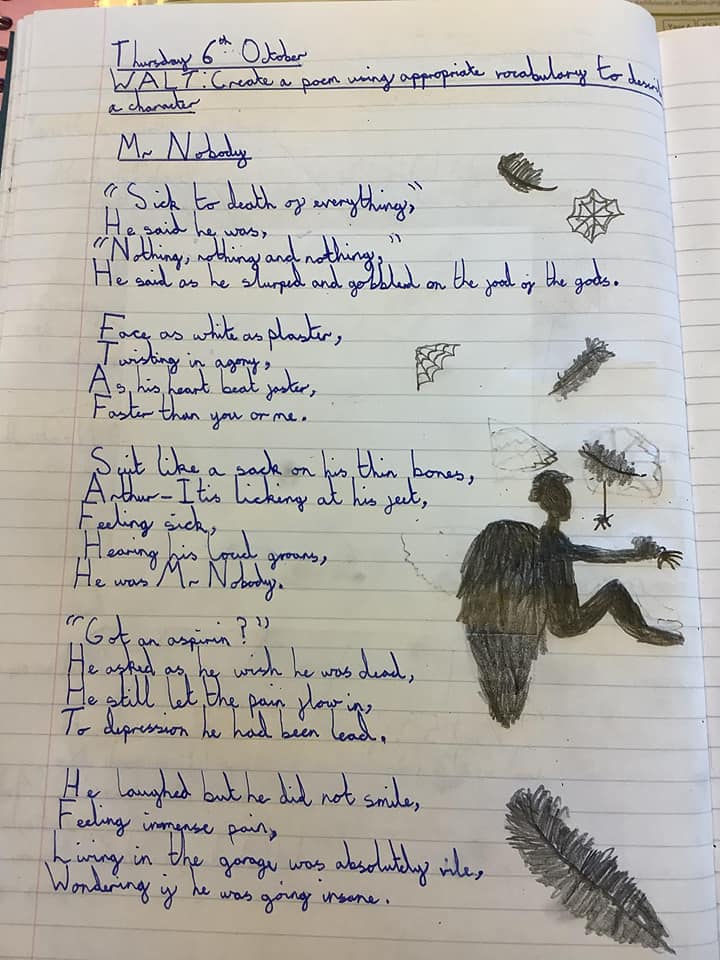 Thursday 6th October
WALT: Create a poem using appropriate vocabulary to describ
a character
Mr Nobody
"Sick to death of everything,"
He said he was,
"Nothing, nothing and nothing,"
He said as he slurped and gobbled on the food of the gods.
Face as white as plaster,
Twisting in agony,
As his heart beat faster,
Faster than you or me.
Suit like a sack on his thin bones,
Arthur-Itis licking at his feet,
Feeling sick,
Hearing his loud groans,
He was Mr Nobody.
"Got an aspirin?"
He asked as he wish he was dead,
He still let the pain flow in,
To depression he had been lead.
He laughed but he did not smile,
Feeling immense pain,
Living in the garage was absolutely vile,
Wondering if he was going insane.